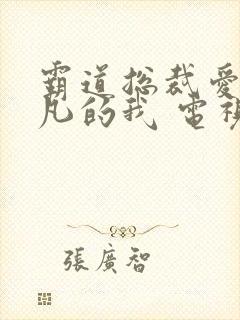 霸道总裁爱
凡的我 電視
張廣智